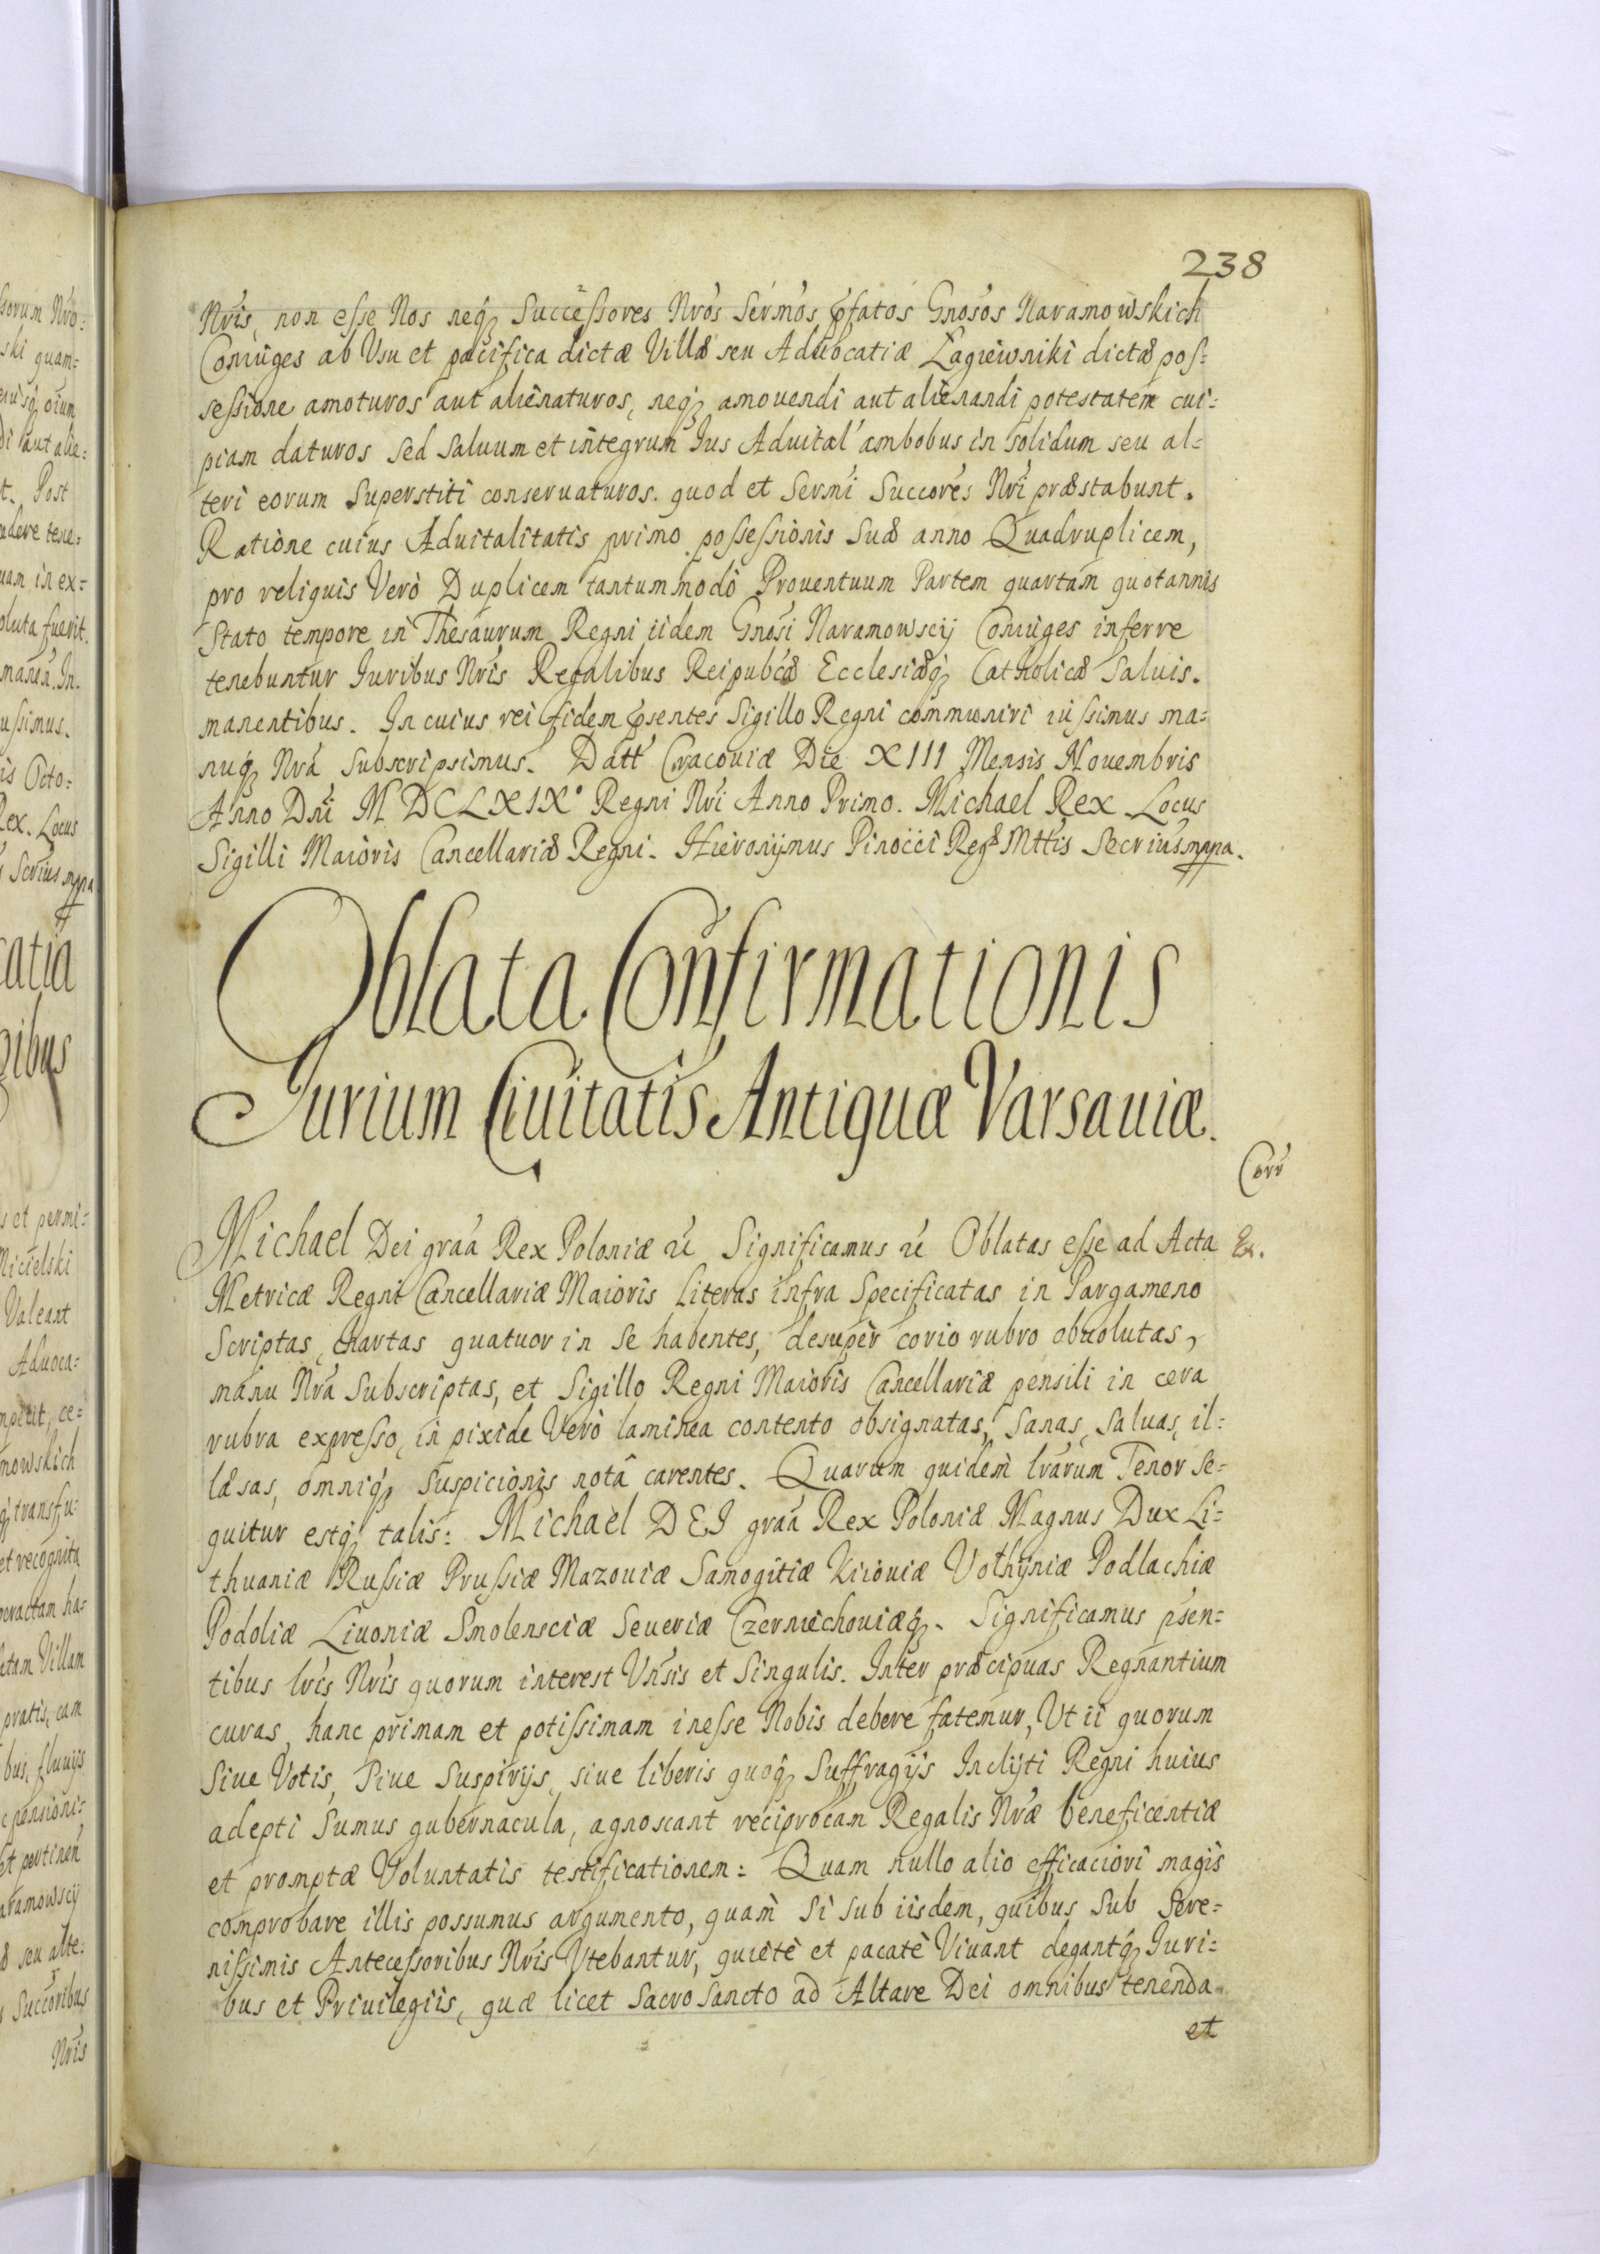 238
Nris, non esse Nos neq₃ Successores Nros Sermos pfatos Gnosos Naramowskich
Coniuges ab Vsu et pacifica dictæ Villæ seu Aduocatiæ Łagiewniki dictæ pos=
sessione amoturos aut alienaturos, neq₃ amouendi aut alienandi potestatem cui=
piam daturos sed saluum et integrum Ius Aduital' ambobus in solidum seu al=
teri eorum Superstiti conseruaturos. quod et Sermi Succores Nri præstabunt.
Ratione cuius Aduitalitatis primo possessionis Suæ anno Quadruplicem,
pro reliquis Verò Duplicem tantummodò Prouentuum Partem quartam quotannis
Stato tempore in Thesaurum Regni iidem Gnosi Naramowscij Coniuges inferre
tenebuntur Iuribus Nris Regalibus Reipubcæ Ecclesiæq₃ Catholicæ Saluis.
manentibus. In cuius rei fidem psentes Sigillo Regni communiri iussimus ma=
nuq₃ Nra Subscripsimus. Datt Cracouiæ Die XIII Mensis Nouembris
Anno Dni MDCLXIX° Regni Nri Anno Primo. Michael Rex. Locus
Sigilli Maioris Cancellariæ Regni. Hieronijmus Pinocci Regæ Mttis Secrius mppa.
Oblata Confirmationis
Iurium Ciuitatis Antiquæ Varsauiæ.
Corr
Michael Dei graa Rex Poloniæ &c Significamus &c Oblatas esse ad Acta
Ex.
Metricæ Regni Cancellariæ Maioris Literas infra Specificatas in Pargameno
Scriptas, chartas quatuor in se habentes, desuper corio rubro obuolutas,
manu Nra Subscriptas, et Sigillo Regni Maioris Cancellariæ pensili in cera
rubra expresso, in pixide Verò laminea contento obsignatas, Sanas, Saluas, il=
læsas, omniq₃ Suspicionis notâ carentes. Quarum quidem lrarum Tenor Se=
quitur estq₃ talis: Michael DEI graa Rex Poloniæ Magnus Dux Li=
thuaniæ Russiæ Prussiæ Mazouiæ Samogitiæ Kiiouiæ Volhyniæ Podlachiæ
Podoliæ Liuoniæ Smolensciæ Seueriæ Czerniechouiæq₃. Significamus psen=
tibus lris Nris quorum interest Vnsis et Singulis. Inter præcipuas Regnantium
curas, hanc primam et potissimam inesse Nobis debere fatemur, Vt ii quorum
Siue Votis, Siue Suspirijs, siue liberis quoq₃ Suffragijs Inclijti Regni huius
adepti Sumus gubernacula, agnoscant reciprocam Regalis Nræ beneficentiæ
et promptæ Voluntatis testificationem: Quam nullo alio efficaciori magis
comprobare illis possumus argumento, quam si sub iisdem, quibus sub Sere=
nissimis Antecessoribus Nris Vtebantur, quietè et pacatè Viuant degantq₃ Iuri=
bus et Priuilegiis, quæ licet Sacro Sancto ad Altare Dei omnibus tenenda
et